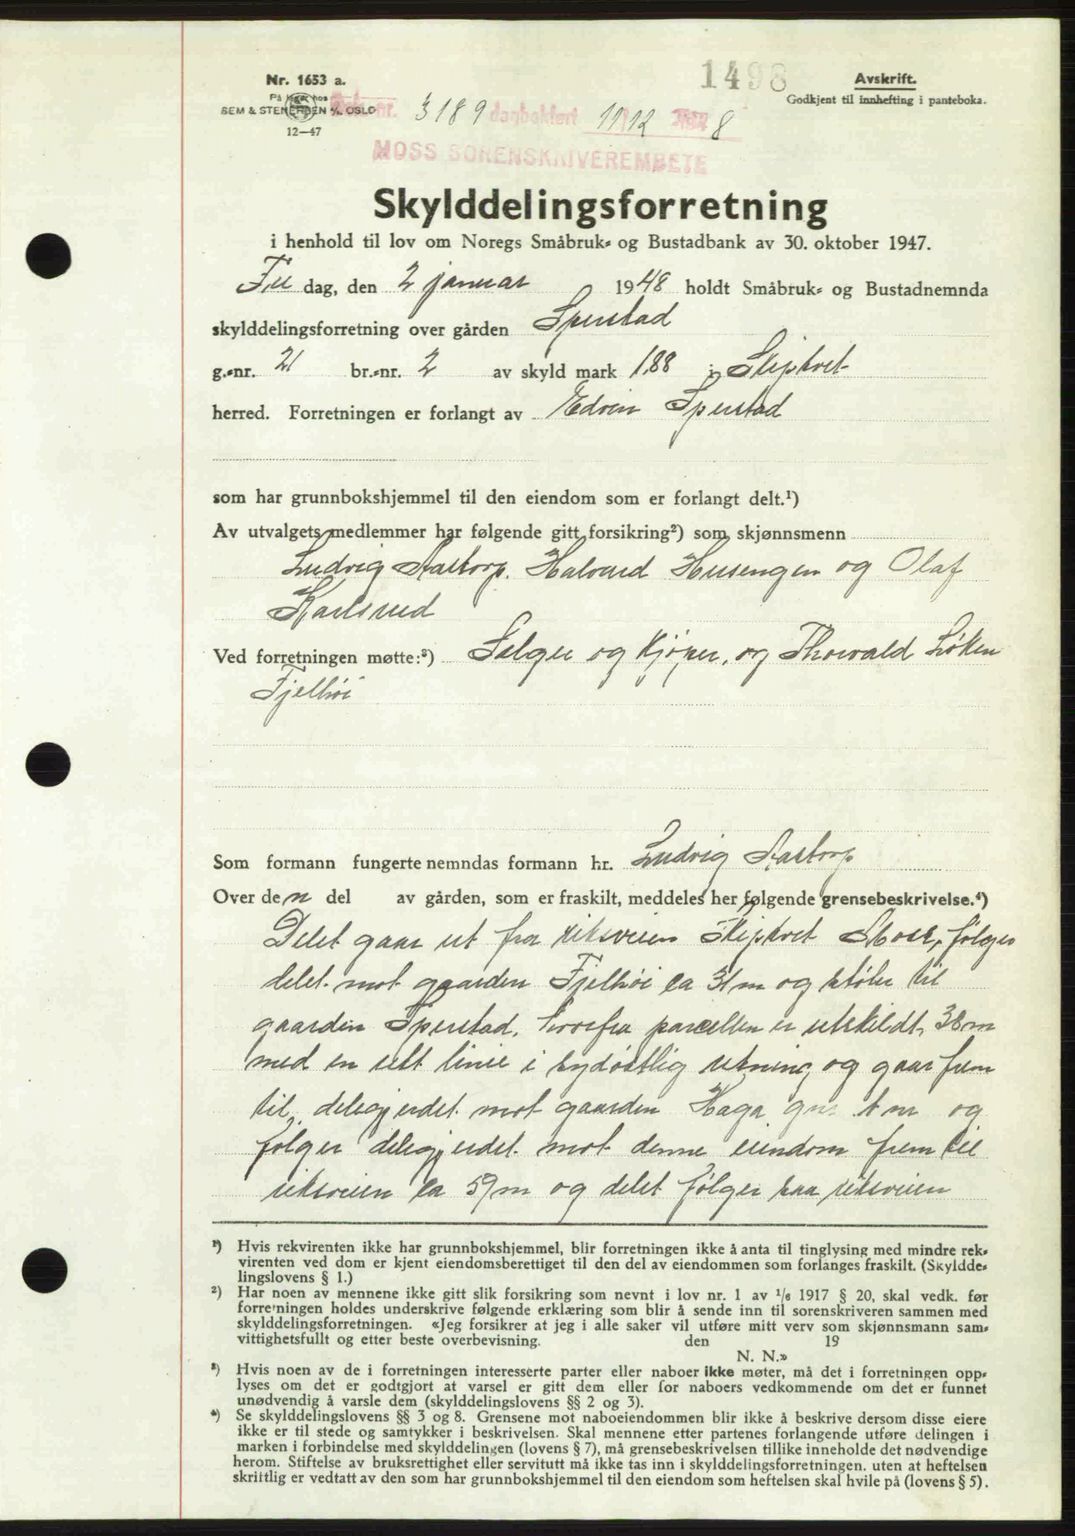 Nr. 1653 a.
På lager hos
SEM & STENERSEN A/S OSLO
12—47
1498
Avskrift.
Godkjent til innhefting i panteboka.
nr. 3189 dagbokført 11/12 1948
MOSS SORENSKRIVEREMBETE
Skylddelingsforretning
i henhold til lov om Noregs Småbruk- og Bustadbank av 30. oktober 1947.
Fre dag, den 2 januar 1948 holdt Småbruk- og Bustadnemnda
skylddelingsforretning over gården Sperstad
g.-nr. 21 br.-nr. 2 av skyld mark 1,88 i Skiptvet
herred. Forretningen er forlangt av Edvin Sperstad
som har grunnbokshjemmel til den eiendom som er forlangt delt.¹)
Av utvalgets medlemmer har følgende gitt forsikring²) som skjønnsmenn
Ludvig Aastorp. Halvard Husengen og Olaf
Karlsrud
Ved forretningen møtte:³) Selger og kjøper, og Thorvald Løken
Fjelhøi
Som formann fungerte nemndas formann hr. Ludvig Aastorp
Over den del av gården, som er fraskilt, meddeles her følgende grensebeskrivelse.⁴)
Delet gaar ut fra riksveien Skiptvet Moss, følger
delet mot gaarden Fjelhøi ca 31 m og støter til
gaarden Sperstad, hvorfra parcellen er utskildt, 38 m
med en rett linie i sydøstlig retning, og gaar frem
til delegjerdet mot gaarden Haga og
følger delegjerdet mot denne eiendom frem til
riksveien ca 59 m og delet følger saa riksveien
¹) Hvis rekvirenten ikke har grunnbokshjemmel, blir forretningen ikke å anta til tinglysing med mindre rek-
virenten ved dom er kjent eiendomsberettiget til den del av eiendommen som forlanges fraskilt. (Skyldde-
lingslovens § 1.)
²) Har noen av mennene ikke gitt slik forsikring som nevnt i lov nr. 1 av ¹/₆ 1917 § 20, skal vedk. før
forretningen holdes underskrive følgende erklæring som blir å sende inn til sorenskriveren sammen med
skylddelingsforretningen. «Jeg forsikrer at jeg i alle saker vil utføre mitt verv som skjønnsmann sam-
vittighetsfullt og etter beste overbevisning. den 19
N. N.»
³) Hvis noen av de i forretningen interesserte parter eller naboer ikke møter, må det i forretningen opp-
lyses om det er godtgjort at varsel er gitt dem eller for naboers vedkommende om det er funnet
unødvendig å varsle dem (skylddelingslovens §§ 2 og 3).
⁴) Se skylddelingslovens §§ 3 og 8. Grensene mot naboeiendommen blir ikke å beskrive dersom disse eiere
ikke er til stede og samtykker i beskrivelsen. Skal mennene etter partenes forlangende utføre delingen i
marken i forbindelse med skylddelingen (lovens § 7), må grensebeskrivelsen tillike inneholde det nødvendige
herom. Stiftelse av bruksrettighet eller servitutt må ikke tas inn i skylddelingsforretningen. uten at heftelsen
skriftlig er vedtatt av den som har grunnbokshjemmel til den eiendom som heftelsen skal hvile på (lovens § 5).